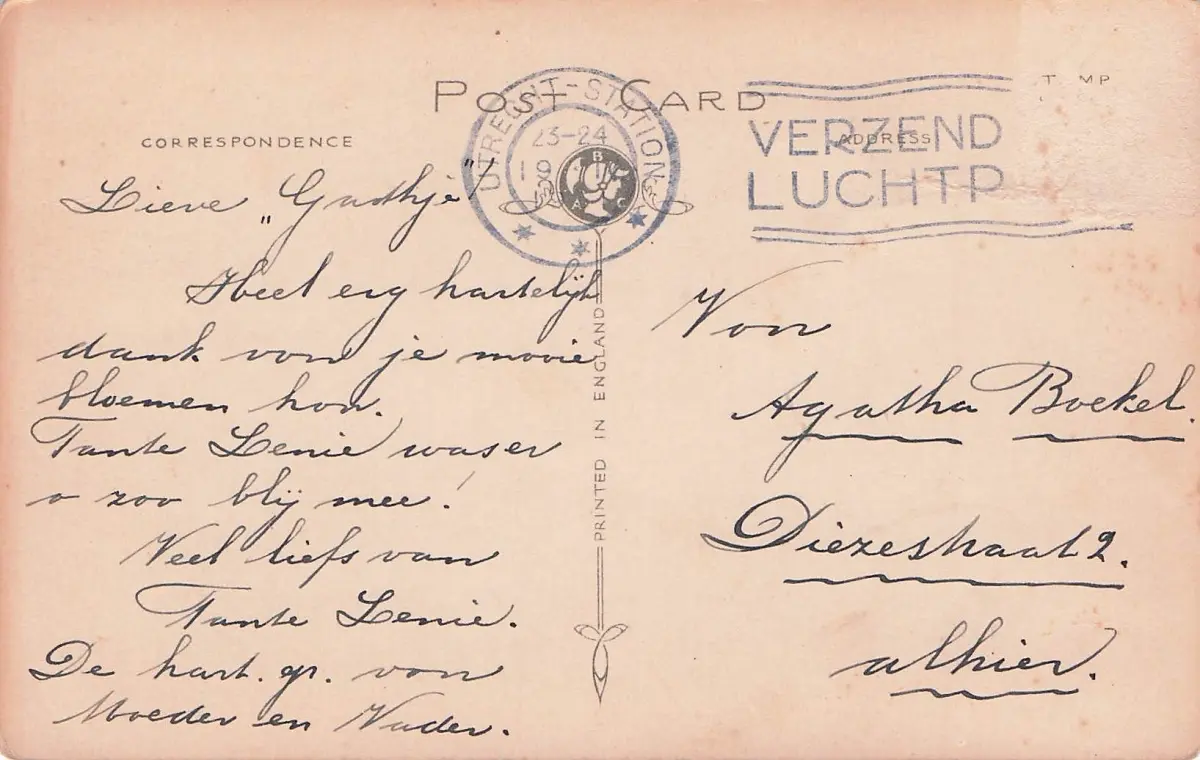 POST CARD
CORRESPONDENCE
ADDRESS
UTRECHT-STATION
23-24
VERZEND
LUCHTP
Lieve „Gaathje"
Heel erg hartelijk
dank von je mooie
bloemen hoor.
Tante Lenie was er
o zoo blij mee!
Veel liefs van
Tante Lenie.
De hart. gr. von
Moeder en Vader.
PRINTED IN ENGLAND
Von
Agatha Boekel.
Diezestraat 2.
alhier.